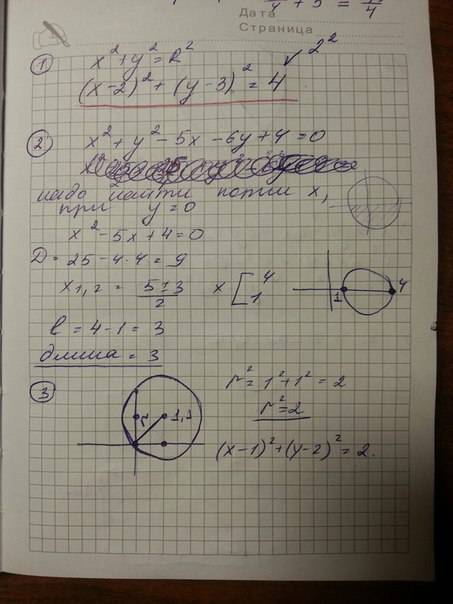 4 + 5 = 4
Дата
Страница
1 x² + y² = R²
(x-2)² + (y-3)² = 4 2²
2 x² + y² - 5x - 6y + 4 = 0
надо найти x,
при y = 0
x² - 5x + 4 = 0
D = 25 - 4·4 = 9
x1,2 = 5±3 / 2 x [ 4 1
1 4
l = 4 - 1 = 3
длина = 3
3 r² = 1² + 1² = 2
r 1,1
r² = 2
(x-1)² + (y-2)² = 2.